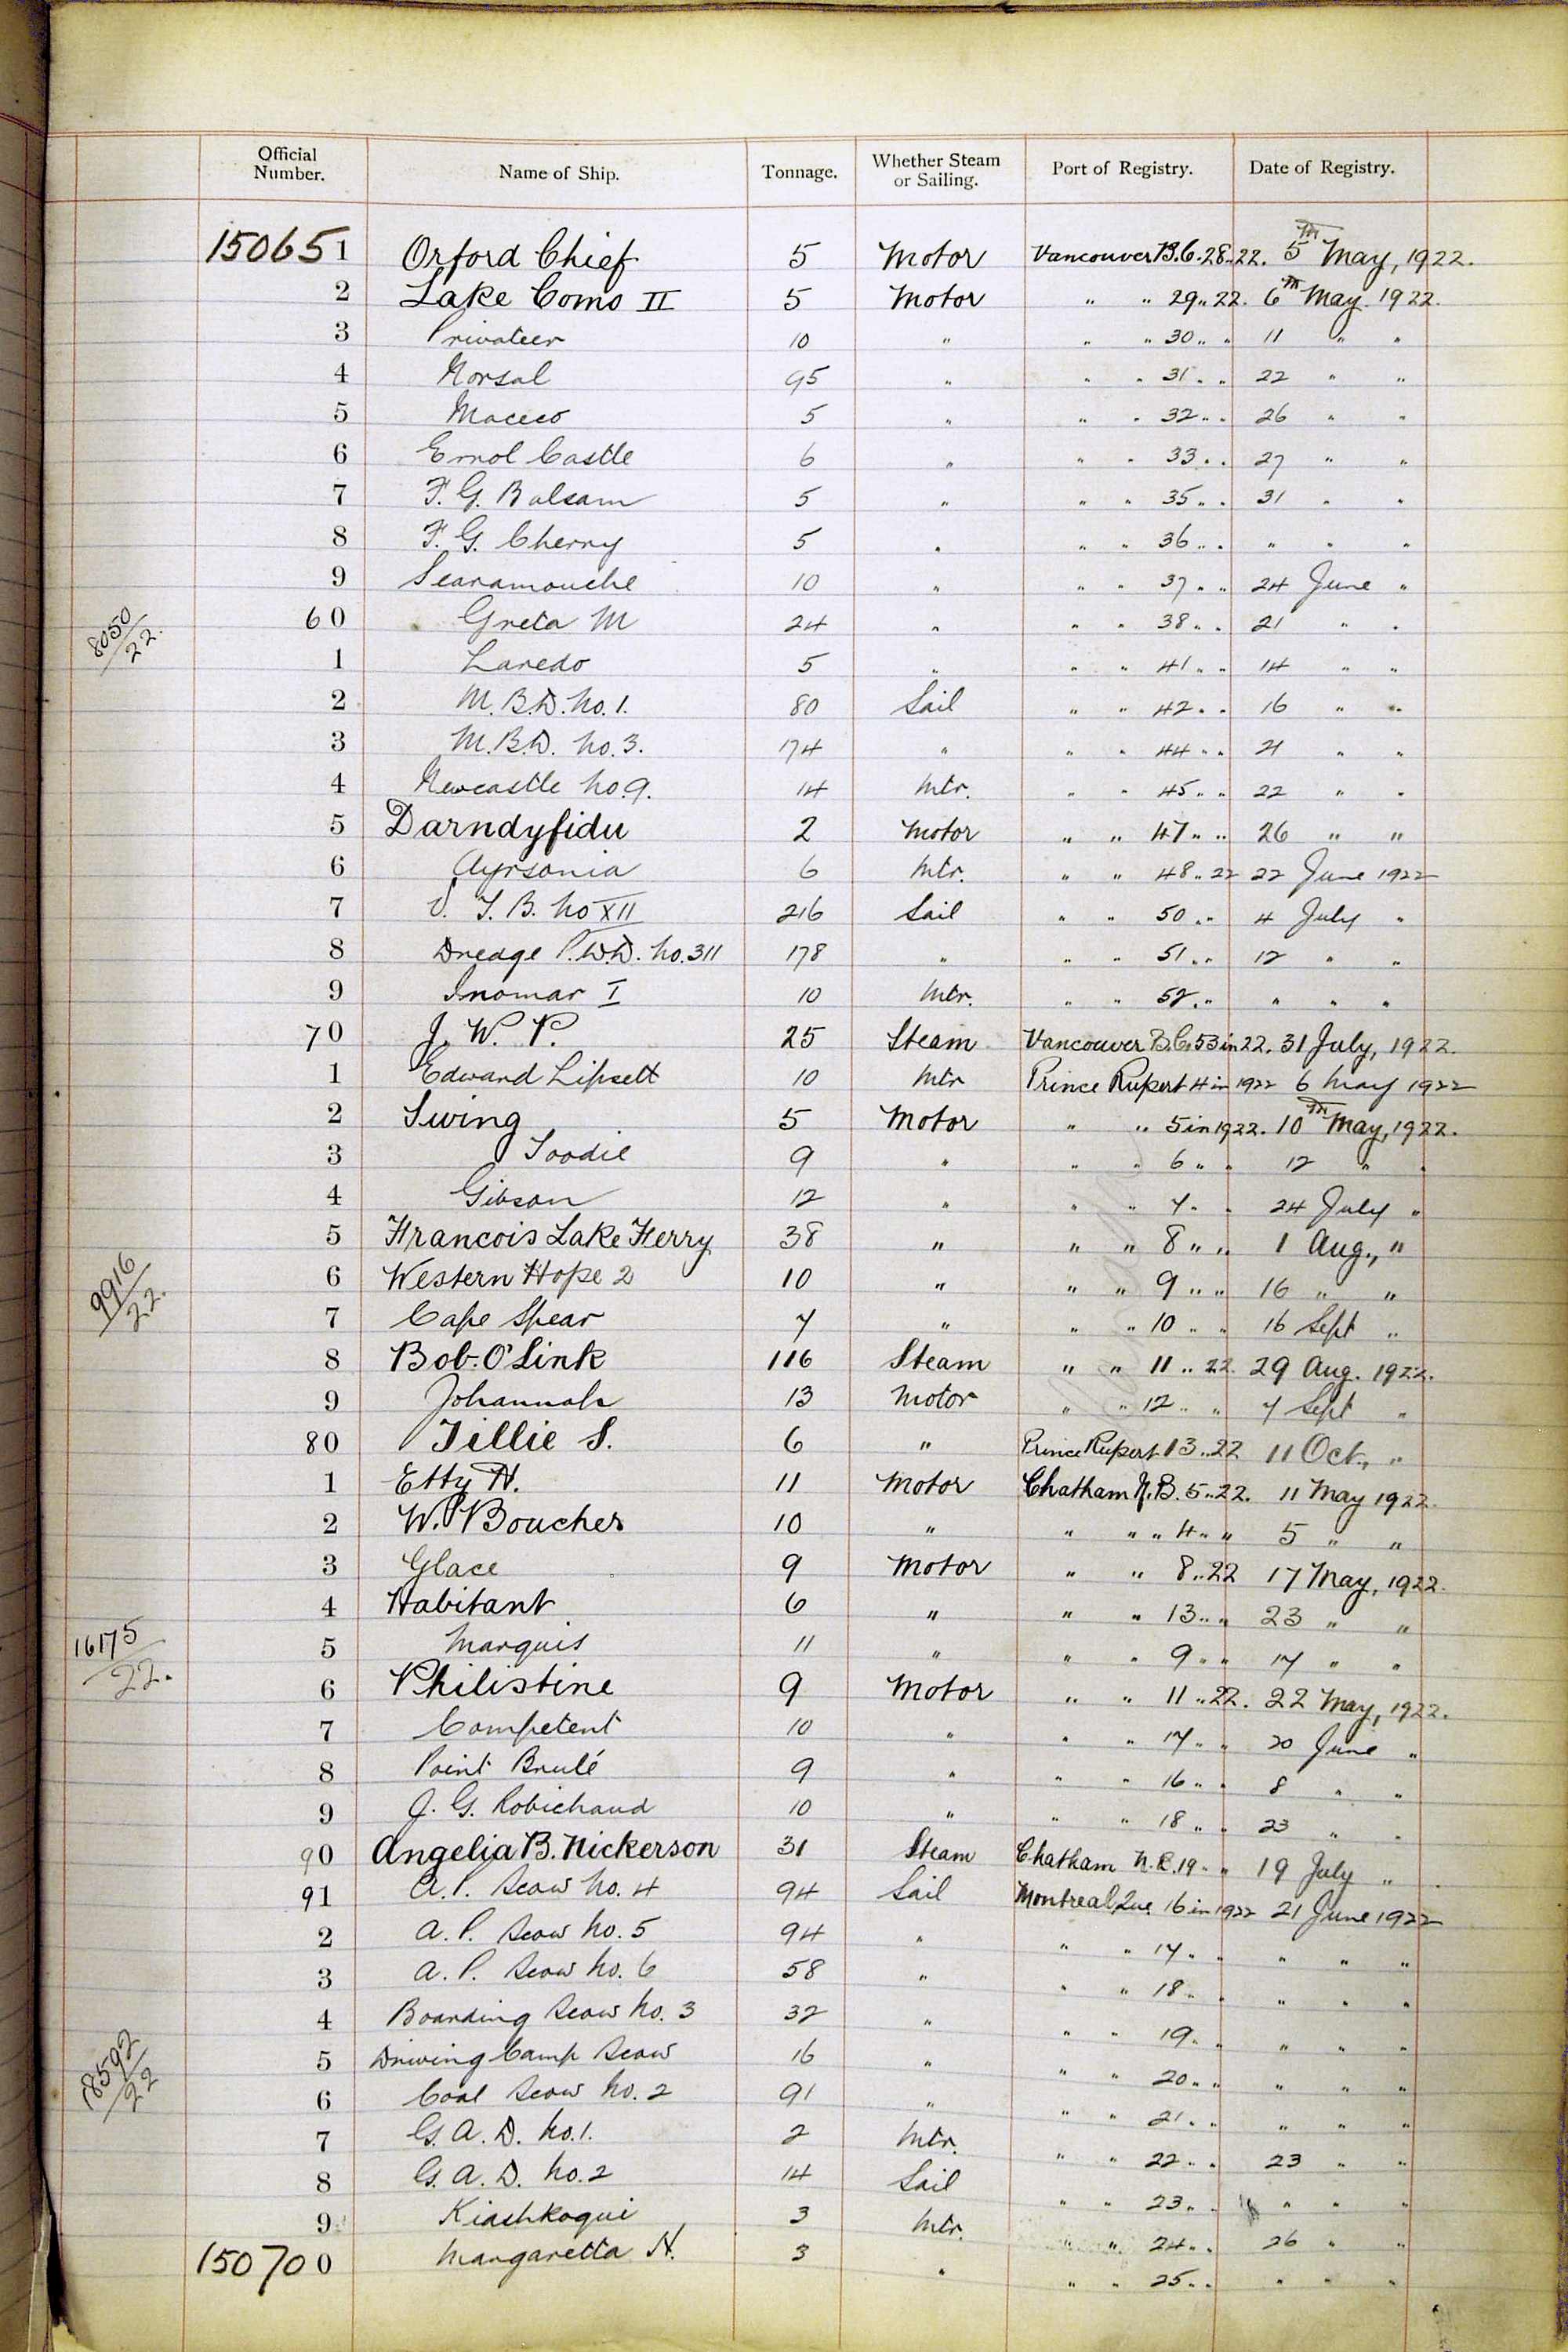 Official Number. Name of Ship. Tonnage. Whether Steam or Sailing. Port of Registry. Date of Registry.
150651 Orford Chief 5 Motor Vancouver B.C. 28..22. 5th May, 1922.
2 Lake Como II 5 Motor " " 29..22. 6th May. 1922.
3 Privateer 10 " " " 30 " " 11 " "
4 Norsal 95 " " " 31 " " 22 " "
5 Maceco 5 " " " 32 " " 26 " "
6 Errol Castle 6 " " " 33 " " 27 " "
7 F. G. Balsam 5 " " " 35 " " 31 " "
8 F. G. Cherry 5 " " " 36 " " " " "
9 Scaramouche 10 " " " 37 " " 24 June "
8050/22. 60 Greta M 24 " " " 38 " " 21 " "
1 Laredo 5 " " " 41 " " 14 " "
2 M.B.D. No. 1. 80 Sail " " 42 " " 16 " "
3 M.B.D. No. 3. 174 " " " 44 " " 21 " "
4 Newcastle No. 9. 14 Mtr. " " 45 " " 22 " "
5 Darndyfidu 2 Motor " " 47 " " 26 " "
6 Ayrsonia 6 Mtr. " " 48..22 22 June 1922
7 V. T. B. No XII 216 Sail " " 50 " " 4 July "
8 Dredge P.W.D. No. 311 178 " " " 51 " " 12 " "
9 Inomar I 10 Mtr. " " 52 " " " " "
70 J. W. P. 25 Steam Vancouver B.C. 53 in 22. 31 July, 1922.
1 Edward Lipsett 10 Mtr Prince Rupert 4 in 1922 6 May 1922
2 Swing 5 Motor " " 5 in 1922. 10th May, 1922.
3 Toodie 9 " " " 6 " " 12 " "
4 Gibson 12 " " " 7 " " 24 July "
5 Francois Lake Ferry 38 " " " 8 " " 1 Aug., "
9916/22. 6 Western Hope 2 10 " " " 9 " " 16 " "
7 Cape Spear 7 " " " 10 " " 16 Sept "
8 Bob-O'Link 116 Steam " " 11 .. 22. 29 Aug. 1922.
9 Johannah 13 Motor " " 12 " " 7 Sept "
80 Tillie S. 6 " Prince Rupert 13..22 11 Oct., "
1 Etty H. 11 Motor Chatham N.B. 5..22. 11 May 1922.
2 W. Boucher 10 " " " " 4 " " 5 " "
3 Glace 9 Motor " " 8..22 17 May, 1922.
4 Habitant 6 " " " 13 " " 23 " "
16175/22. 5 Marquis 11 " " " 9 " " 17 " "
6 Philistine 9 Motor " " 11..22. 22 May, 1922.
7 Competent 10 " " " 17 " " 20 June "
8 Point Brulé 9 " " " 16 " " 8 " "
9 J. G. Robichaud 10 " " " 18 " " 23 " "
90 Angelia B. Nickerson 31 Steam Chatham N.B. 19 " " 19 July "
91 A.P. Scow No. 4 94 Sail Montreal, Que 16 in 1922 21 June 1922
2 A.P. Scow No. 5 94 " " " 17 " " " " "
3 A.P. Scow No. 6 58 " " " 18 " " " " "
4 Boarding Scow No. 3 32 " " " 19 " " " " "
18592/22 5 Driving Camp Scow 16 " " " 20 " " " " "
6 Coal Scow No. 2 91 " " " 21 " " " " "
7 G.A.D. No. 1. 2 Mtr. " " 22 " " 23 " "
8 G.A.D. No. 2 14 Sail " " 23 " " " " "
9 Kiashkoqui 3 Mtr. " " 24 " " 26 " "
150700 Margaretta H. 3 " " " 25 " " " " "